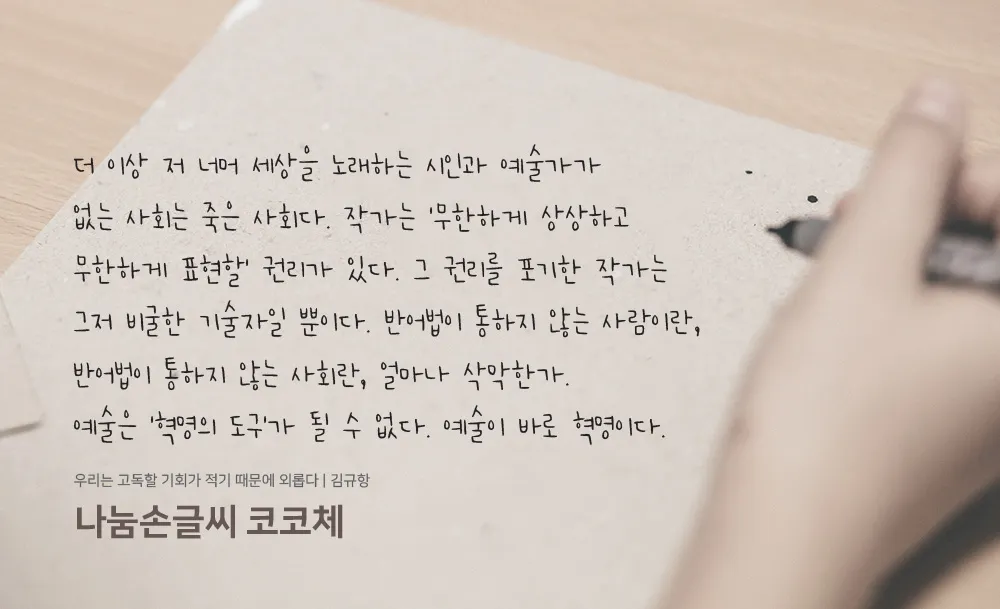 더 이상 저 너머 세상을 노래하는 시인과 예술가가
없는 사회는 죽은 사회다. 작가는 '무한하게 상상하고
무한하게 표현할' 권리가 있다. 그 권리를 포기한 작가는
그저 비굴한 기술자일 뿐이다. 반어법이 통하지 않는 사람이란,
반어법이 통하지 않는 사회란, 얼마나 삭막한가.
예술은 '혁명의 도구'가 될 수 없다. 예술이 바로 혁명이다.
우리는 고독할 기회가 적기 때문에 외롭다 | 김규항
나눔손글씨 코코체